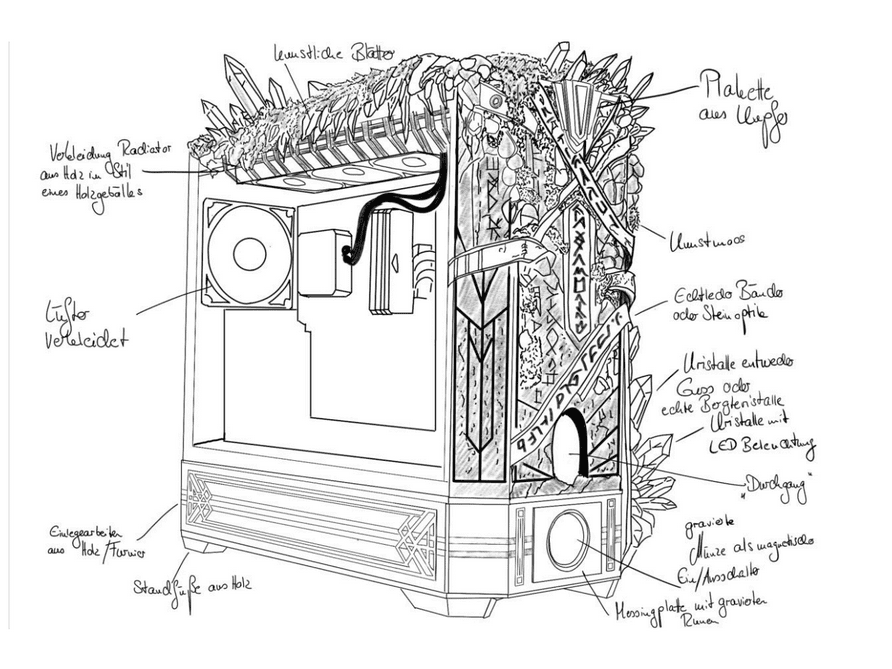 künstliche Blätter
Plakette
aus Kupfer
Verkleidung Radiator
aus Holz im Stil
eines Holzgebälkes
Kunstmoos
Echtleder Bänder
oder Steinoptik
Lüfter
verkleidet
Kristalle entweder
Guss oder
echte Bergkristalle
Kristalle mit
LED Beleuchtung
„Durchgang“
Einlegearbeiten
aus Holz/Furnier
gravierte
Münze als magnetischer
Ein/Ausschalter
Standfüße aus Holz
Messingplatte mit gravierten
Runen